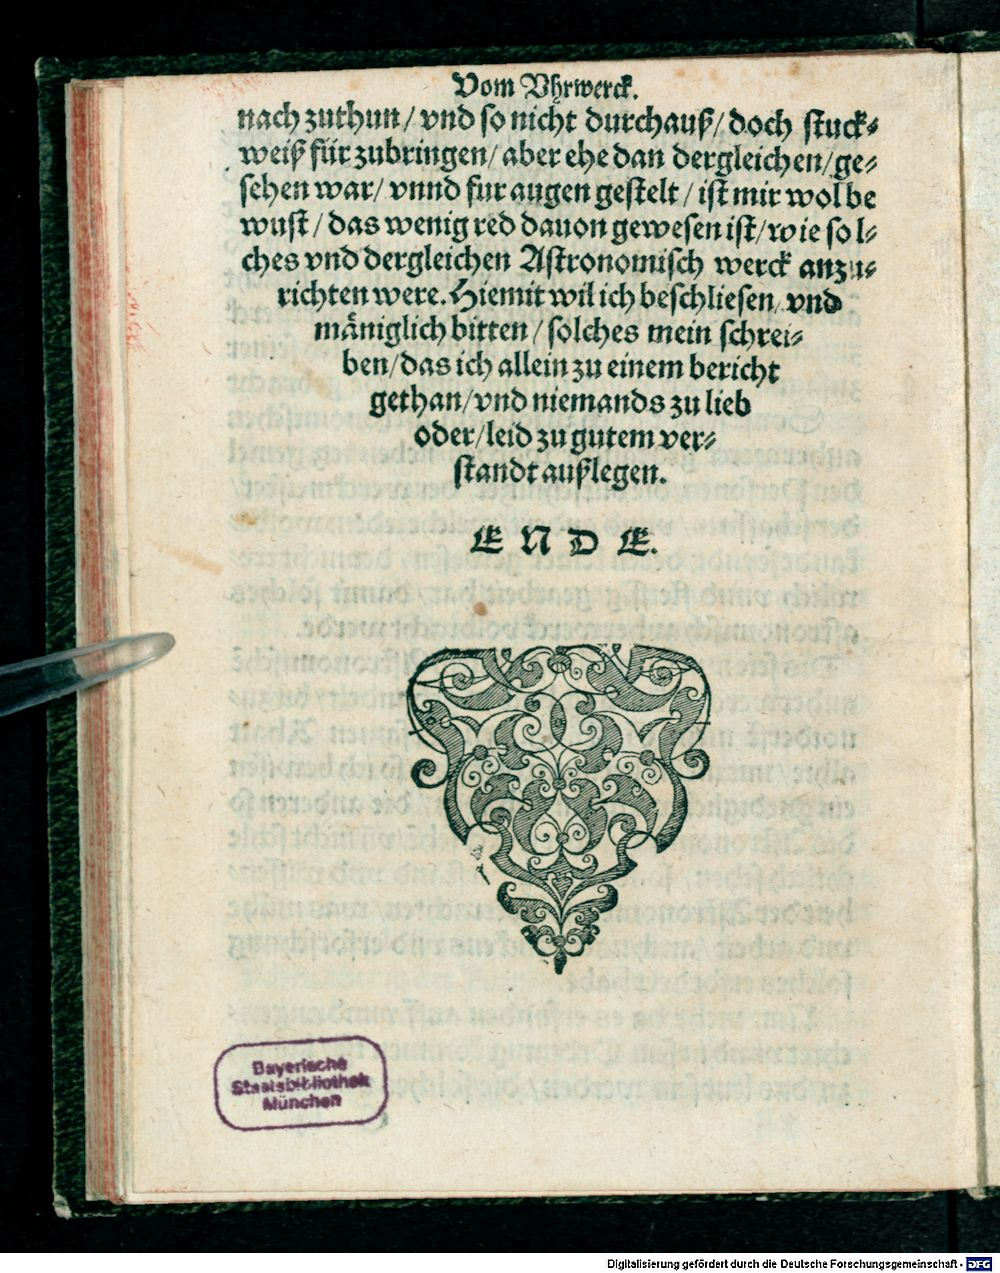 Vom Vhrwerck.
nach zuthun/ vnd so nicht durchauß/ doch stuck⸗
weiß für zubringen/ aber ehe dan dergleichen/ ge⸗
sehen war/ vnnd fur augen gestelt/ ist mir wol be
wust/ das wenig red dauon gewesen ist/ wie sol⸗
ches vnd dergleichen Astronomisch werck anzu⸗
richten were. Hiemit wil ich beschliesen/ vnd
mäniglich bitten/ solches mein schrei⸗
ben/ das ich allein zu einem bericht
gethan/ vnd niemands zu lieb
oder/ leid zu gutem ver⸗
standt außlegen.
E N D E.
Bayerische
Staatsbibliothek
München
Digitalisierung gefördert durch die Deutsche Forschungsgemeinschaft - DFG